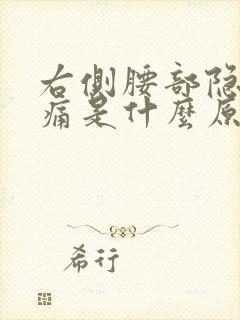 右側腰部隐
痛是什麼原
希行